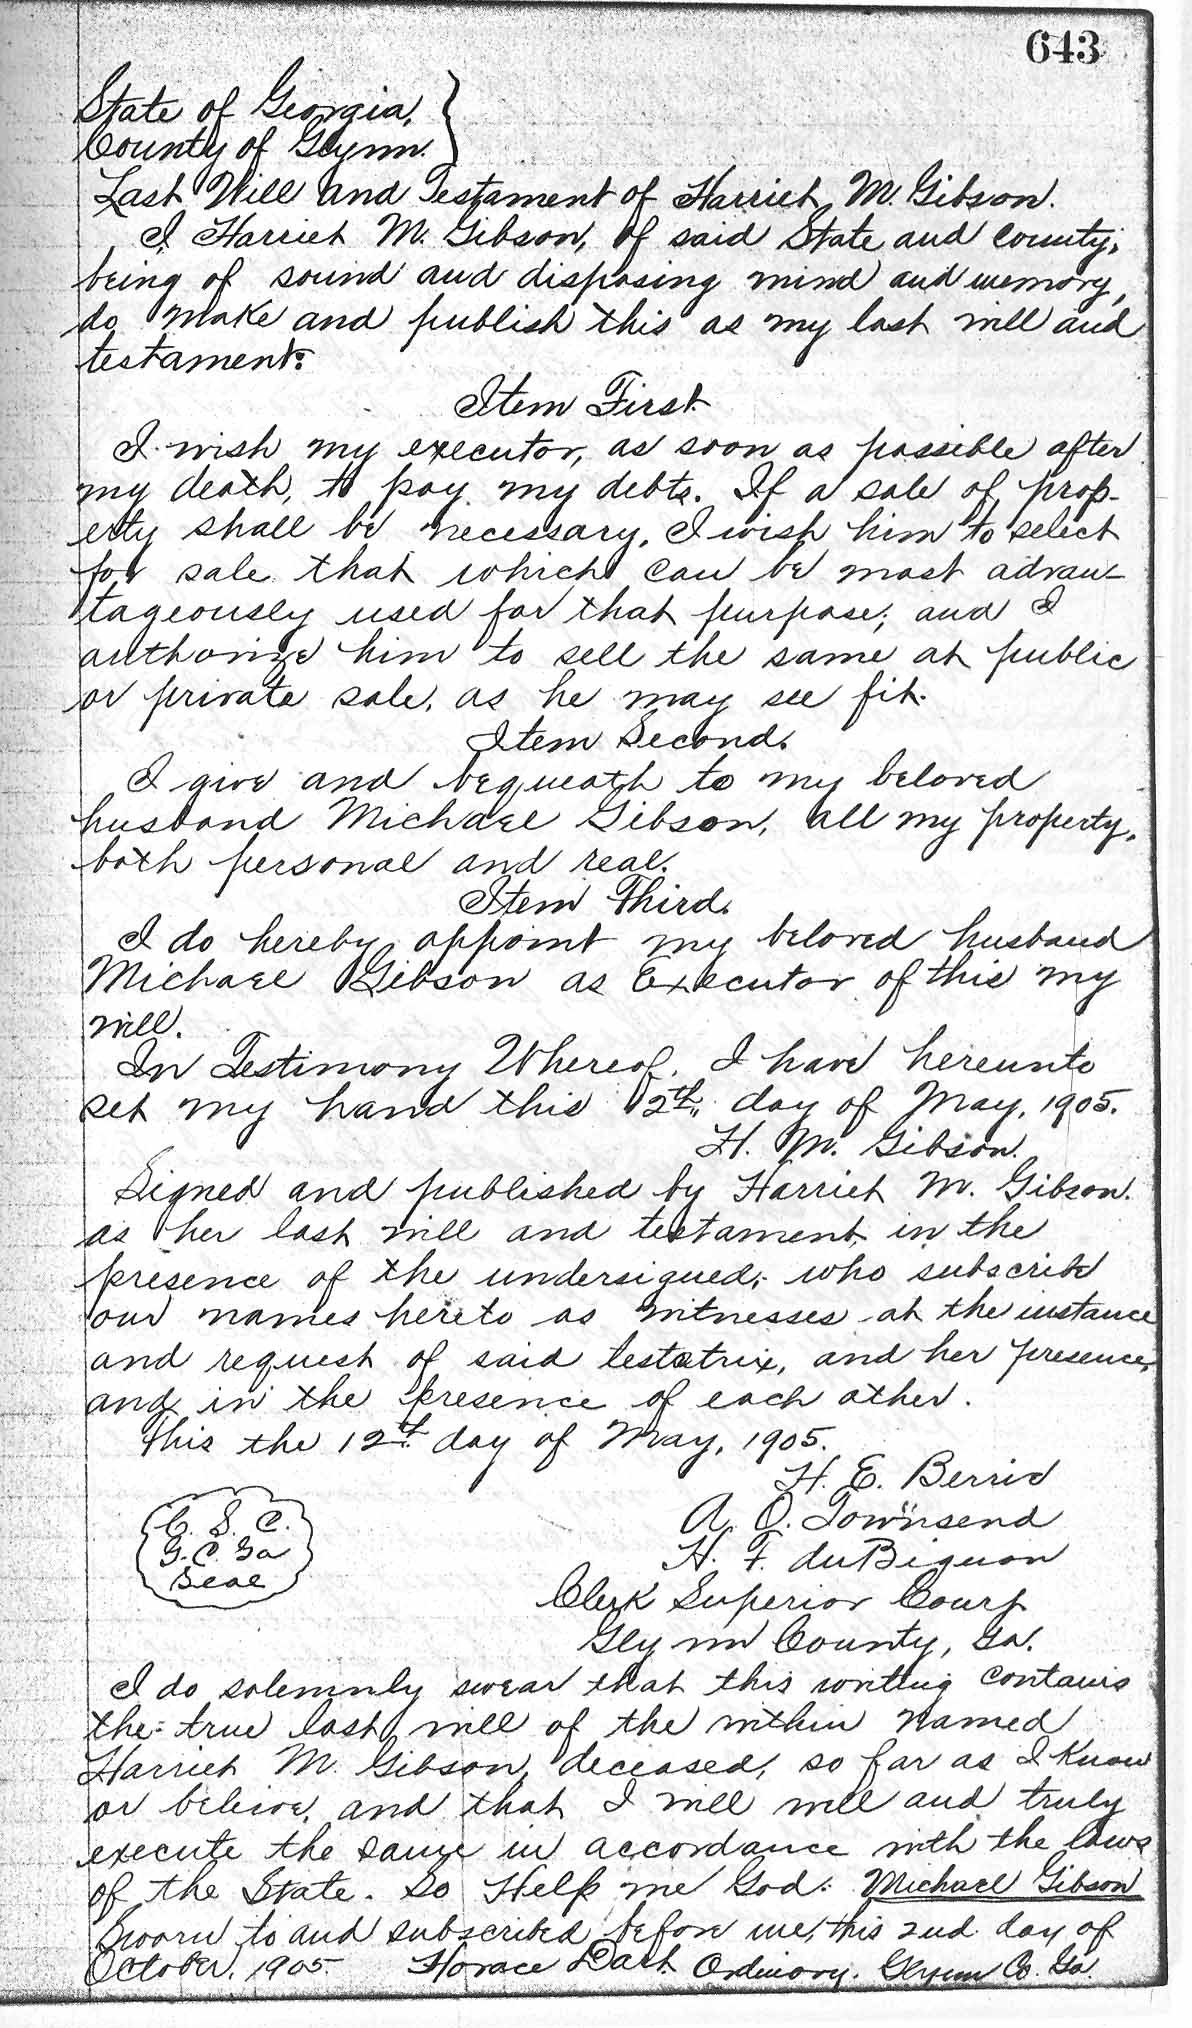 643
State of Georgia,
County of Glynn.
Last Will and Testament of Harriet M. Gibson.
I Harriet M. Gibson, of said State and County,
being of sound and disposing mind and memory,
do make and publish this as my last will and
testament:
Item First.
I wish my executor, as soon as possible after
my death, to pay my debts. If a sale of prop-
erty shall be necessary, I wish him to select
for sale that which can be most advan-
tageously used for that purpose; and I
authorize him to sell the same at public
or private sale, as he may see fit.
Item Second.
I give and bequeath to my beloved
husband Michael Gibson, all my property,
both personal and real.
Item Third.
I do hereby appoint my beloved husband
Michael Gibson as Executor of this my
will.
In Testimony Whereof, I have hereunto
set my hand this 12th, day of May, 1905.
H. M. Gibson.
Signed and published by Harriet M. Gibson.
as her last will and testament in the
presence of the undersigned, who subscribe
our names hereto as witnesses at the instance
and request of said testatrix, and her presence,
and in the presence of each other.
This the 12th day of May, 1905.
H. E. Berrie
A. O. Townsend
H. F. duBignon
Clerk Superior Court
Glynn County, Ga.
C. S. C.
G. C. Ga
Seal
I do solemnly swear that this writing contains
the true last will of the within named
Harriet M. Gibson, deceased, so far as I know
or beleive, and that I will well and truly
execute the same in accordance with the laws
of the State. So Help me God. Michael Gibson
Sworn to and subscribed before me, this 2nd. day of
October, 1905 Horace Dart Ordinary. Glynn Co. Ga.